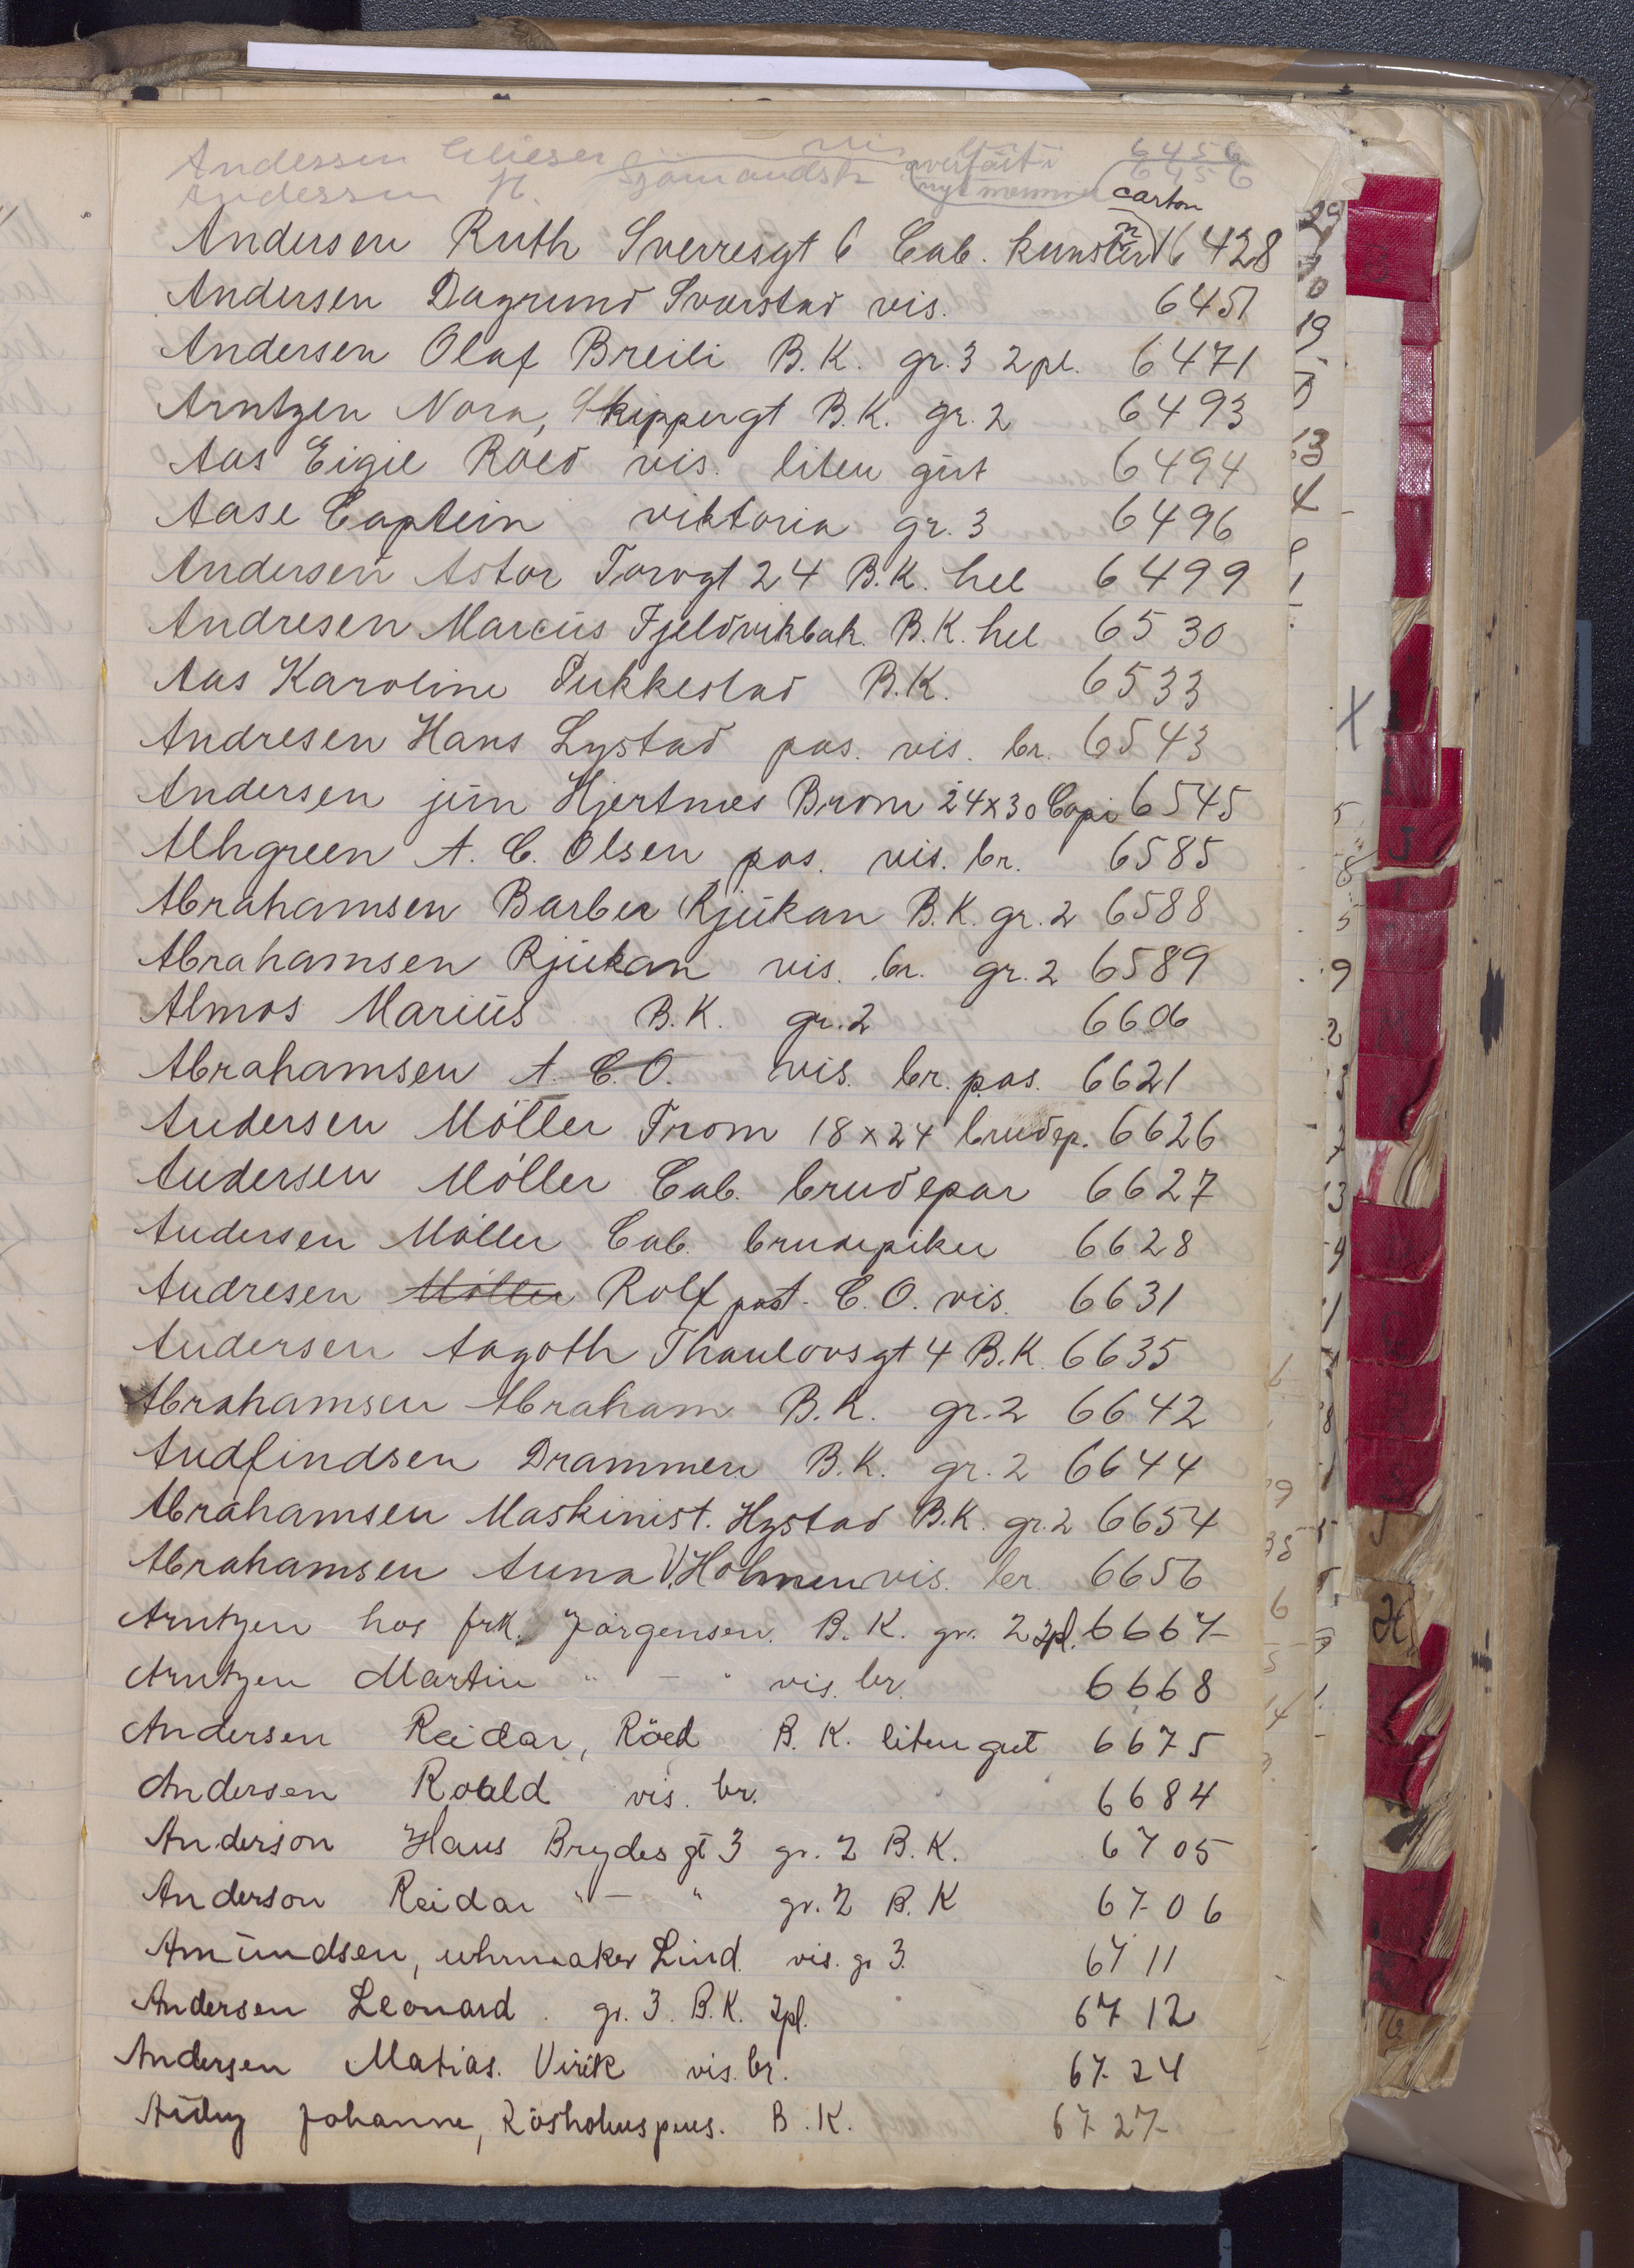 Anderssen Elieser 6456
Anderssen H. overført i 6456
nye nummer carton
Andersen Ruth Sverresgt 6 Cab. kunstn 6428
Andersen Dagrund Svarstad vis. 6451
Andersen Olaf Breili B.K. gr. 3 2 pl. 6471
Arntzen Nora, Skippergt B.K. gr. 2 6493
Aas Eigil Roed vis. liten gut 6494
Aase Captein viktoria gr. 3 6496
Andersen Astor Torvgt 24 B.K. hel 6499
Andresen Marcus Fjeldvikbak. B.K. hel 6530
Aas Karoline Pukkestad B.K. 6533
Andresen Hans Lystad pas. vis. br. 6543
Andersen jun Hjertnes Brom 24x30 Copi 6545
Alhgreen A. C. Olsen pas. vis. br. 6585
Abrahamsen Barber Rjukan B.K. gr. 2 6588
Abrahamsen Rjukan vis. br. gr. 2 6589
Almos Marius B.K. gr. 2 6606
Abrahamsen A. C. O. vis. br. pas. 6621
Andersen Möller From 18x24 brudep. 6626
Andersen Möller Cab. brudepar 6627
Andersen Möller Cab. brudepiker 6628
Andresen Möller Rolf post. C.O. vis. 6631
Andersen Aagoth Thaulowsgt 4 B.K. 6635
Abrahamsen Abraham B.K. gr. 2 6642
Audfindsen Drammen B.K. gr. 2 6644
Abrahamsen Maskinist. Hystad B.K. gr. 2 6654
Abrahamsen Anna V. Holmen vis. br. 6656
Arntzen hos frk. Jørgensen. B.K. gr. 2 2pl. 6667
Arntzen Martin " — " vis. br. 6668
Andersen Reidar, Röed B.K. liten gut 6675
Andersen Roald vis. br. 6684
Anderson Hans Brydes gt 3 gr. 2 B.K. 6705
Anderson Reidar " — " gr. 2 B.K 6706
Amundsen, uhrmaker Lind. vis. gr 3. 6711
Andersen Leonard. gr. 3. B.K. 2pl. 6712
Andersen Matias. Virik vis. br. 6724
Johanne, B.K. 6727